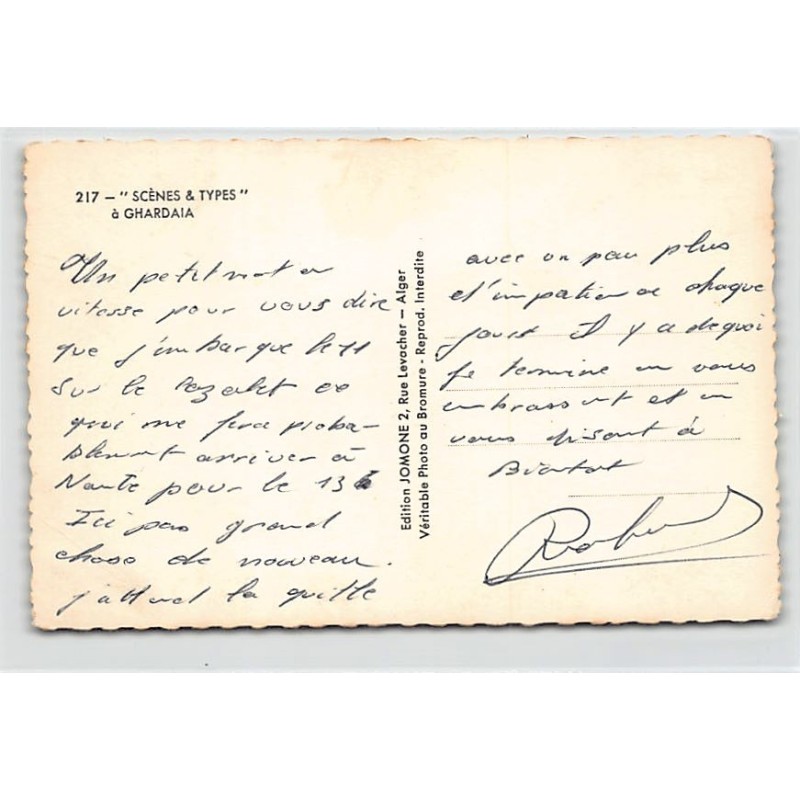 217 – " SCÈNES & TYPES "
à GHARDAIA
Un petit mot a
vitesse pour vous dire
que j'embarque le 11
sur le ce
qui me fera proba-
blement arriver à
Nante pour le 13
Ici pas grand
chose de nouveau.
j'attend la quille
Edition JOMONE 2, Rue Levacher – Alger
Véritable Photo au Bromure - Reprod. Interdite
avec un peu plus
d'impatience chaque
jours Il y a de quoi
Je termine en vous
embrassant et en
vous disant à
Bientot